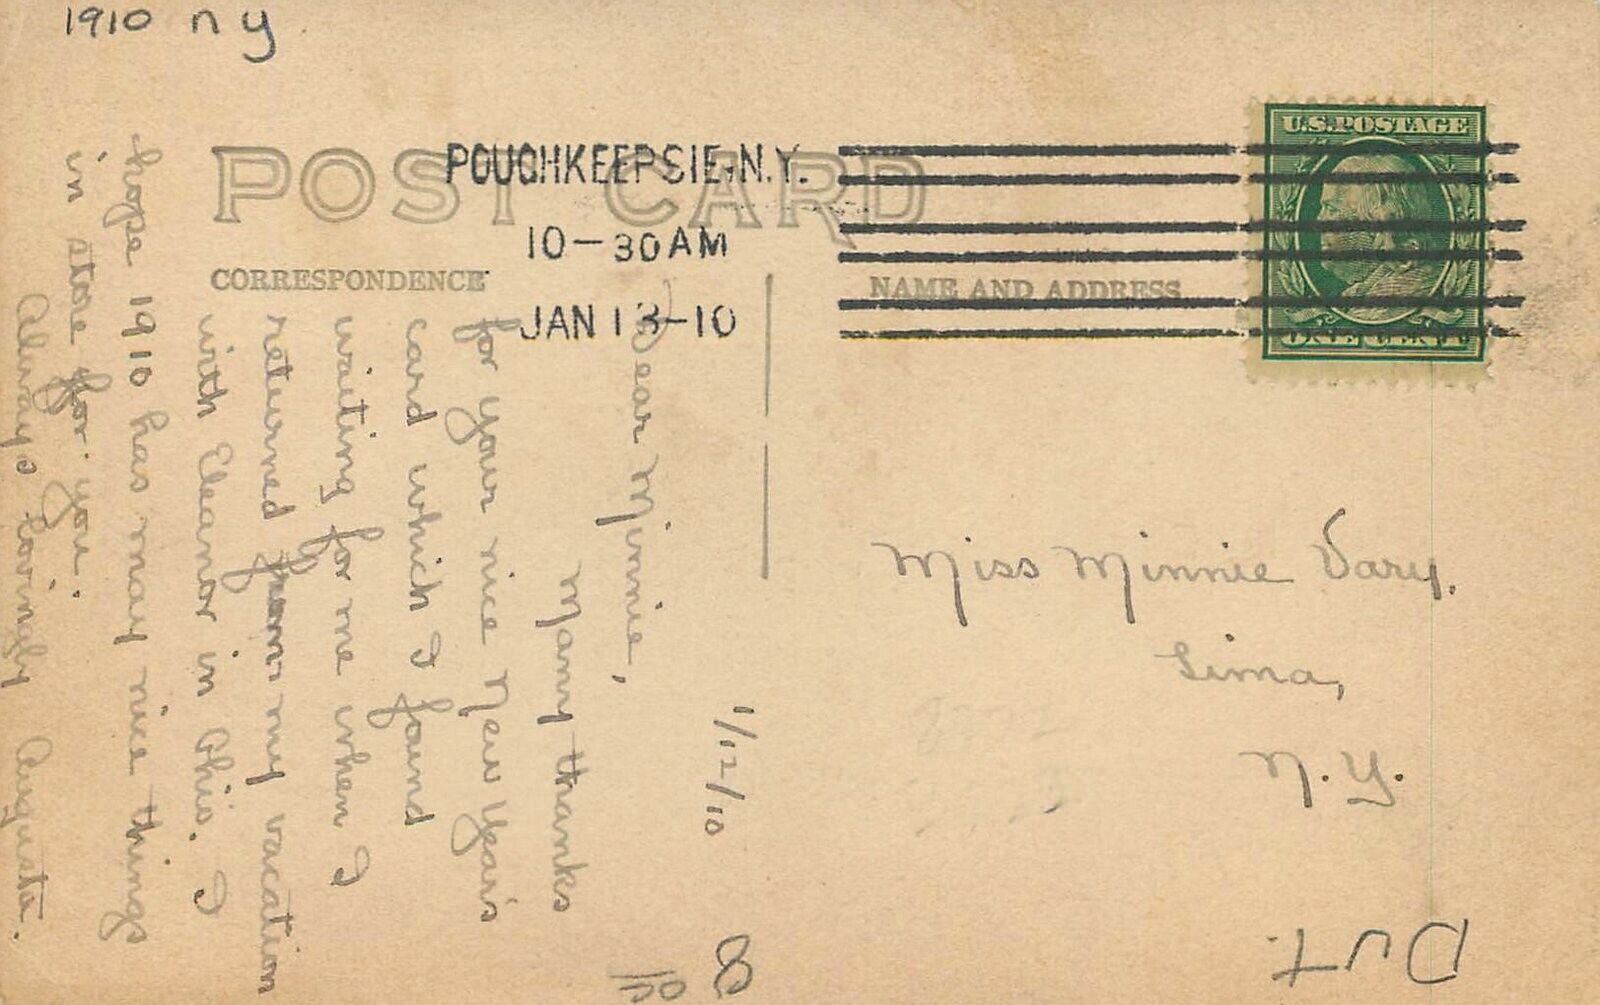 1910 ny
POST CARD
POUGHKEEPSIE, N.Y.
10-30AM
JAN 13-10
U.S. POSTAGE
ONE CENT
CORRESPONDENCE
NAME AND ADDRESS
1/12/10
Dear Minnie,
Many thanks
for your nice New Year's
card which I found
waiting for me when I
returned from my vacation
with Eleanor in Ohio. I
hope 1910 has many nice things
in store for you.
Always lovingly Augusta.
Miss Minnie Vary.
Lima,
N.Y.
Dut.
8